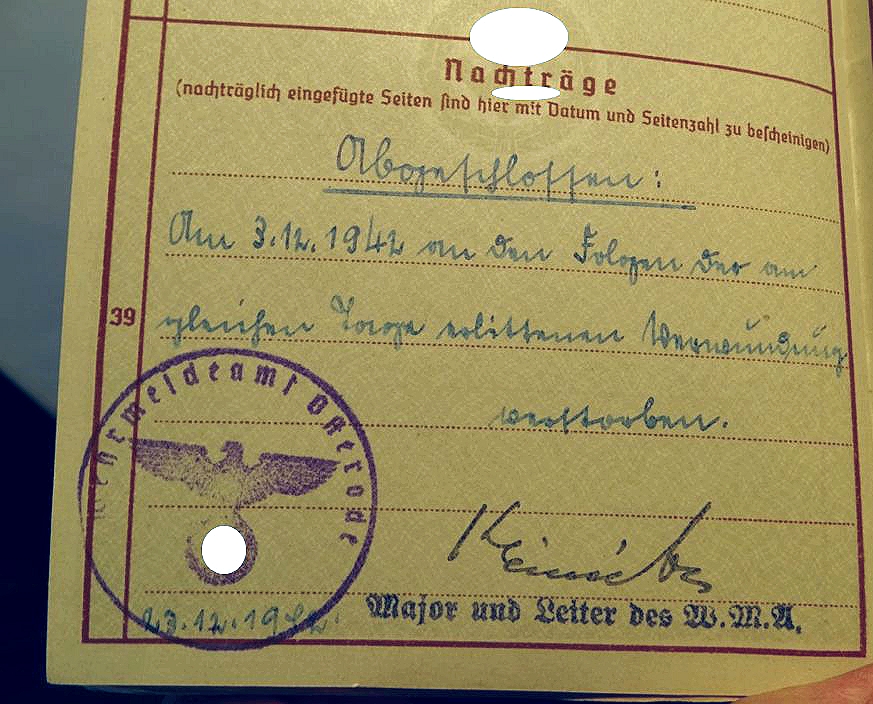 Nachträge
(nachträglich eingefügte Seiten sind hier mit Datum und Seitenzahl zu bescheinigen)
Abgeschlossen:
Am 3.12.1942 an den Folgen der am
39 gleichen Tage erlittenen Verwundung
verstorben.
Wehrmeldeamt Osterode
23.12.1942. Major und Leiter des W.M.A.